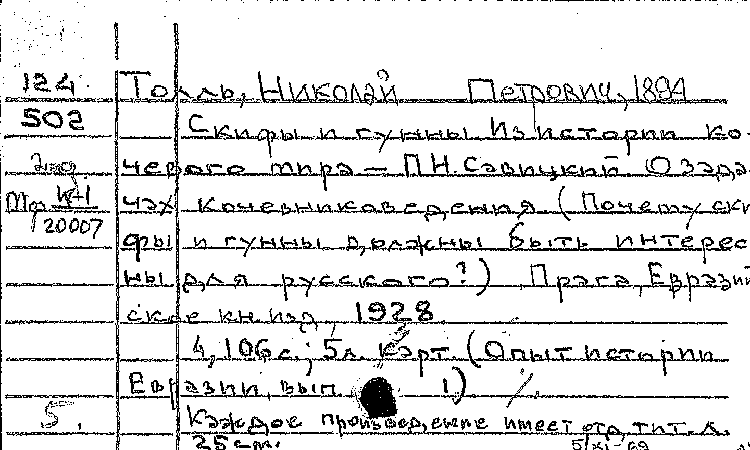 124 Толль, Николай Петрович, 1894
502 Скифы и гунны Из истории ко-
чевого мира — П.Н. Савицкий. О зада-
чах кочевниковедения (Почему ски
20007
фы и гунны должны быть интерес
ны для русского?) Прага, Евразий
ское кн. изд, 1928
4, 106 с.; 5 л. карт. (Опыт истории
Евразии, вып. 1)
5. Каждое произведение имеет отд. тит. л.
25 cm.